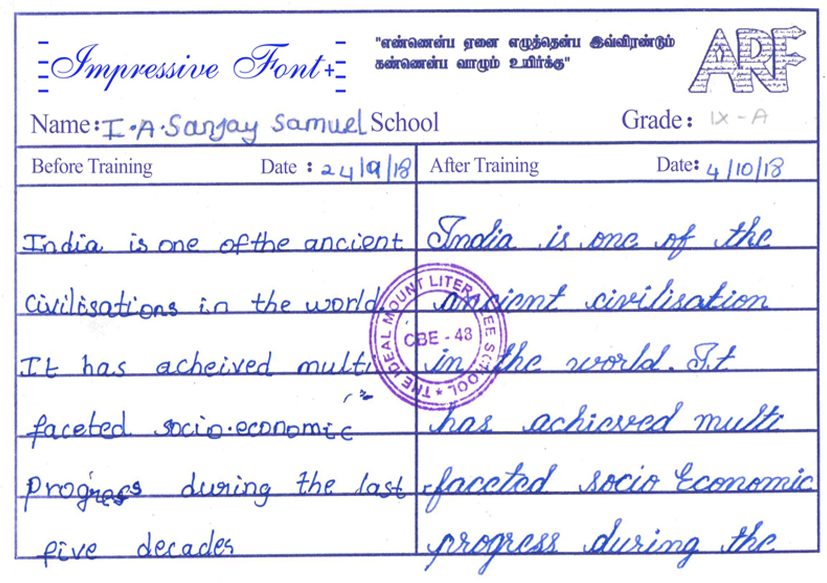 "எண்ணென்ப ஏனை எழுத்தென்ப இவ்விரண்டும்
கண்ணென்ப வாழும் உயிர்க்கு"
Impressive Font+
ARF
Name: I.A.Sanjay Samuel School Grade: IX-A
Before Training Date: 24/9/18
India is one of the ancient
civilisations in the world
It has acheived multi
faceted socio-economic
progress during the last
five decades
After Training Date: 4/10/18
India is one of the
ancient civilisation
in the world. It
has achieved multi
-faceted socio Economic
progress during the
THE IDEAL MOUNT LITERA ZEE SCHOOL
CBE - 48